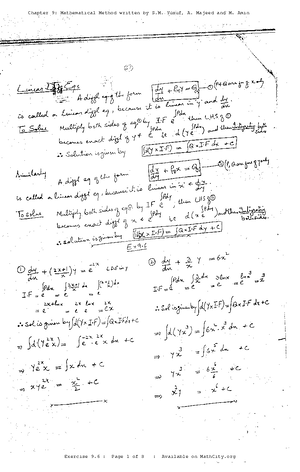 Chapter 9: Mathematical Method written by S.M. Yusuf, A. Majeed and M. Amin
Linear
A diffl eq of the form dy/dx + P₁y = Q₁ —① (P₁ & Q₁ are fns of x only)
is called a linear diffl eq, because it is linear in y and dy/dx.
To Solve Multiply both sides of eq① by IF e^∫Pdx, then LHS of ①
becomes exact diffl of y e^∫Pdx i.e. d(y e^∫Pdx) and then
∴ Solution is given by ∫d(Y×IF) = ∫Q×IF dx + C
Similarly
A diffl eq of the form dx/dy + P₁x = Q₁ —②
is called a linear diffl eq, because it is linear in 'x' & dx/dy.
To solve Multiply both sides of eq② by IF, then LHS of ②
becomes exact diffl of x e i.e. d(x e) and then
∴ solution is given by ∫d(X×IF) = ∫Q×IF dy + C
Ex 9.6
① dy/dx + (2x+1)/x y = e^-2x
IF = e^∫Pdx = e^∫(2x+1)/x dx
= e^2x+lnx = e^2x e^lnx = e^2x x
∴ Sol is given by ∫d(Y×IF) = ∫Q×IF dx + C
⇒ ∫d(Y e^2x x) = ∫e^-2x e^2x x dx + C
⇒ Y e^2x x = ∫x dx + C
⇒ x y e^2x = x²/2 + C
② dy/dx + 3/x y = 6x²
IF = e^∫Pdx = e^∫3/x dx = e^3lnx = e^lnx³ = x³
∴ Sol is given by ∫d(Y×IF) = ∫Q×IF dx + C
⇒ ∫d(Yx³) = ∫6x².x³ dx + C
⇒ yx³ = ∫6x⁵ dx + C
⇒ yx³ = 6x⁶/6 + C
⇒ x³y = x⁶ + C
Exercise 9.6 : Page 1 of 8 : Available on MathCity.org